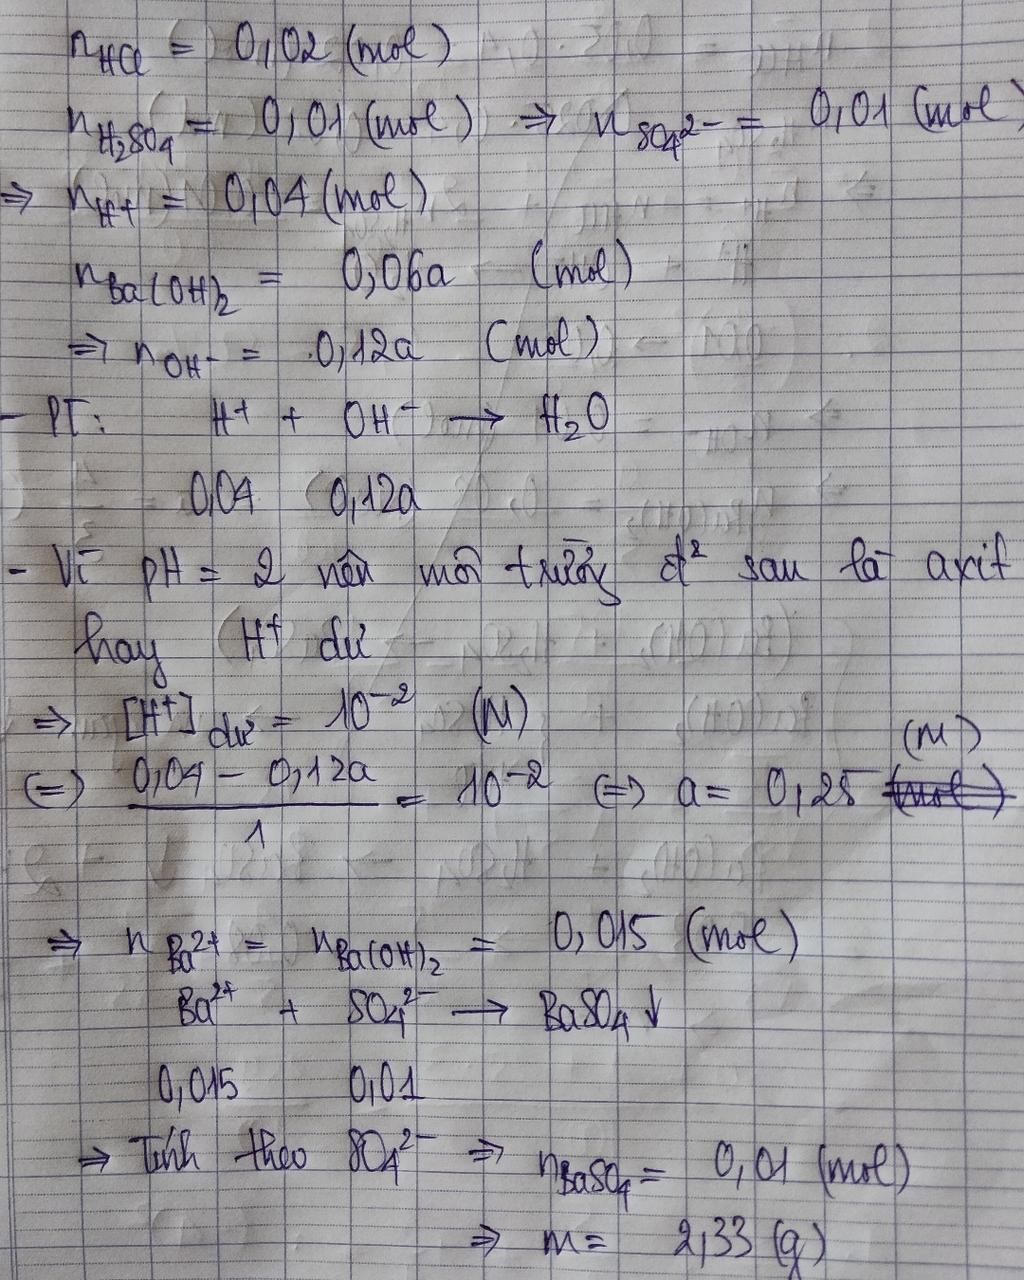 nHCl = 0,02 (mol)
nH₂SO₄ = 0,01 (mol) ⇒ nSO₄²⁻ = 0,01 (mol)
⇒ nH⁺ = 0,04 (mol)
nBa(OH)₂ = 0,06a (mol)
⇒ nOH⁻ = 0,12a (mol)
- PT: H⁺ + OH⁻ → H₂O
0,04 0,12a
- Vì pH = 2 nên môi trường d² sau là axit
hay H⁺ dư
⇒ [H⁺] dư = 10⁻² (M)
(=) (0,04 - 0,12a)/1 = 10⁻² (=) a = 0,25 (mol) (M)
⇒ nBa²⁺ = nBa(OH)₂ = 0,015 (mol)
Ba²⁺ + SO₄²⁻ → BaSO₄ ↓
0,015 0,01
⇒ Tính theo SO₄²⁻ ⇒ nBaSO₄ = 0,01 (mol)
⇒ m = 2,33 (g)